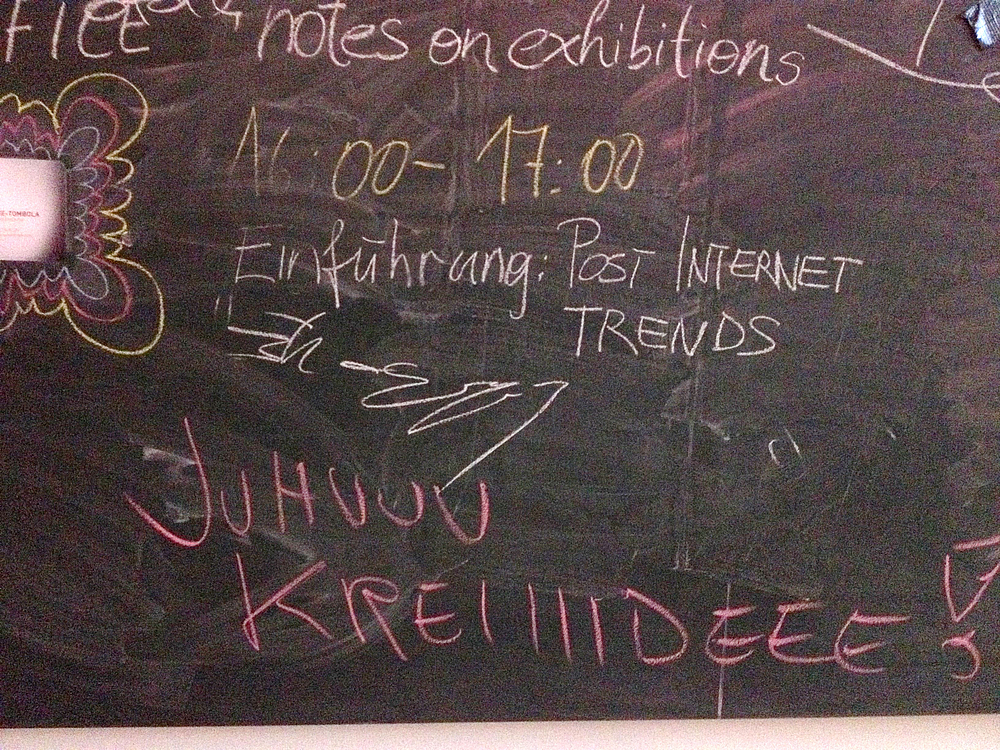 notes on exhibitions
16:00 - 17:00
E-TOMBOLA
Einführung: POST INTERNET
TRENDS
JUHUUU
KREIIIIDEEE!